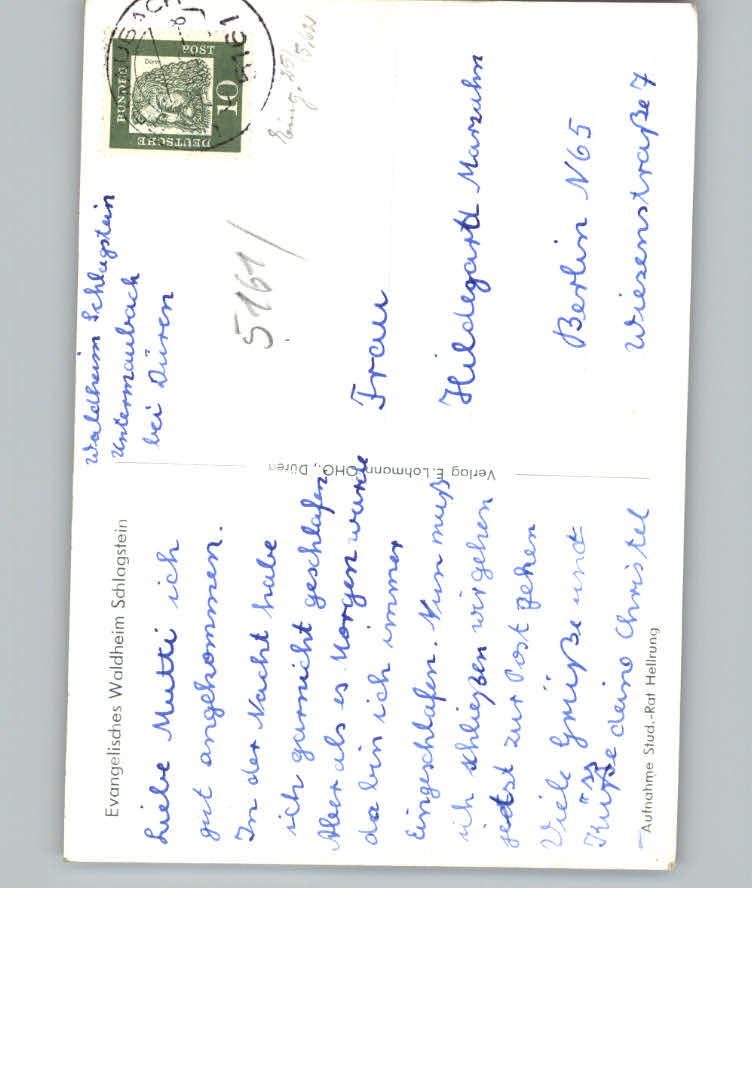 Evangelisches Waldheim Schlagstein
Liebe Mutti ich
gut angekommen.
In der Nacht habe
ich garnicht geschlafen.
Aber als es Morgen wurde
da bin ich immer
Eingeschlafen. Nun muß
ich schließen wir gehen
jetzt zur Post gehen
Viele Grüße und
Küße deine Christel
Aufnahme Stud.-Rat Hellrung
Verlag E. Lohmann OHG., Düren
Waldheim Schlagstein
Untermaubach
bei Düren
5161
DEUTSCHE
BUNDES
POST
10
Dürer
5161
Frau
Hildegardt Marzahn
Berlin N65
Wiesenstraße 7